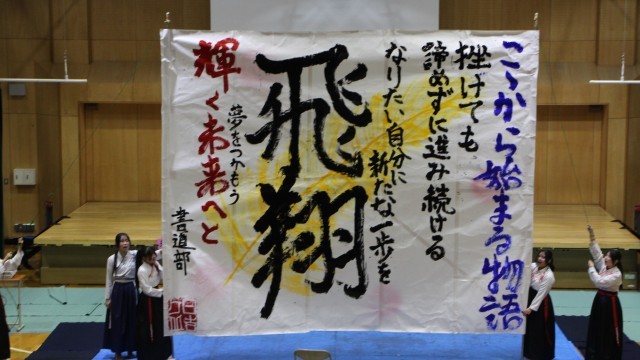 ここから始まる物語
挫けても
諦めずに進み続ける
なりたい自分に
新たな一歩を
飛翔
夢をつかもう
輝く未来へと
書道部